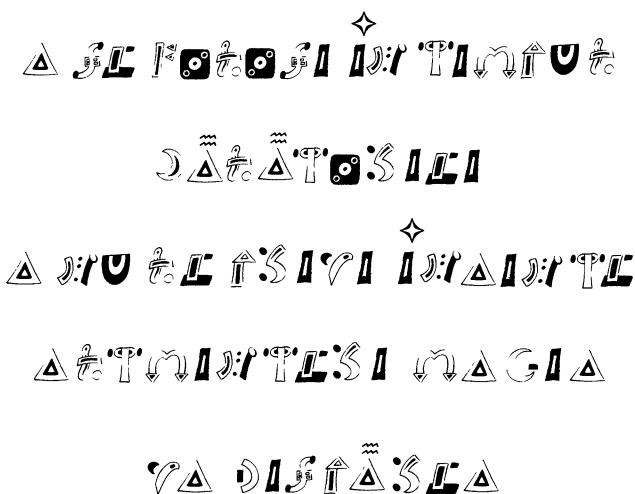 A SE FOLOSI ÎN TIMPUL
CĂLĂTORIEI
A NU LE PRIVI ÎNAINTE
ALTMINTERI MAGIA
VA DISPĂREA